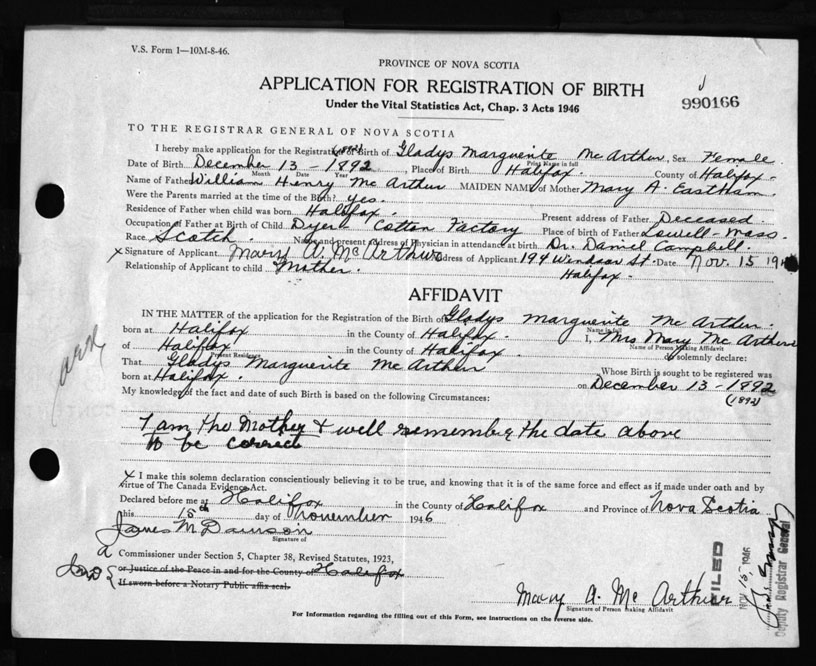 V.S. Form 1—10M-8-46.
PROVINCE OF NOVA SCOTIA
APPLICATION FOR REGISTRATION OF BIRTH
990166
Under the Vital Statistics Act, Chap. 3 Acts 1946
TO THE REGISTRAR GENERAL OF NOVA SCOTIA
(1892)
I hereby make application for the Registration of Birth of Gladys Marguerite Mc Arthur, Sex Female.
Print Name in full
Date of Birth December 13 - 1892 Place of Birth Halifax. County of Halifax.
Month Date Year
Name of Father William Henry Mc Arthur MAIDEN NAME of Mother Mary A. Eastham.
Were the Parents married at time of the Birth? yes.
Residence of Father when child was born Halifax. Present address of Father Deceased.
Occupation of Father at Birth of Child Dyer Cotton Factory Place of birth of Father Lowell - Mass.
Race Scotch. Name and present address of Physician in attendance at birth Dr. Daniel Campbell.
x Signature of Applicant Mary A. McArthur Address of Applicant 194 Windsor St. Date Nov. 15 19
Halifax.
Relationship of Applicant to child Mother.
AFFIDAVIT
IN THE MATTER of the application for the Registration of the Birth of Gladys Marguerite Mc Arthur.
Name in full
born at Halifax in the County of Halifax. I, Mrs Mary Mc Arthur
Name of Person Making Affidavit
of Halifax in the County of Halifax. solemnly declare:
Present Residence
That Gladys Marguerite Mc Arthur Whose Birth is sought to be registered was
born at Halifax. on December 13 - 1892
(1892)
My knowledge of the fact and date of such Birth is based on the following Circumstances:
I am the Mother & well remember the date above
to be correct
x I make this solemn declaration conscientiously believing it to be true, and knowing that it is of the same force and effect as if made under oath and by
virtue of The Canada Evidence Act.
Declared before me at Halifax in the County of Halifax and Province of Nova Scotia
this 15th day of November 1946
James M Dawson
Signature of
a Commissioner under Section 5, Chapter 38, Revised Statutes, 1923,
or Justice of the Peace in and for the County of Halifax
If sworn before a Notary Public affix seal.
Mary A. Mc Arthur
Signature of Person Making Affidavit
FILED
NOV 15, 1946
Deputy Registrar General
For Information regarding the filling out of this Form, see instructions on the reverse side.